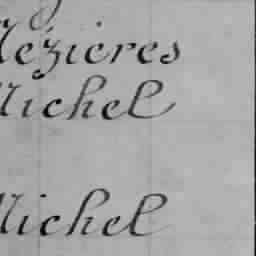 Mézières
Michel
Michel